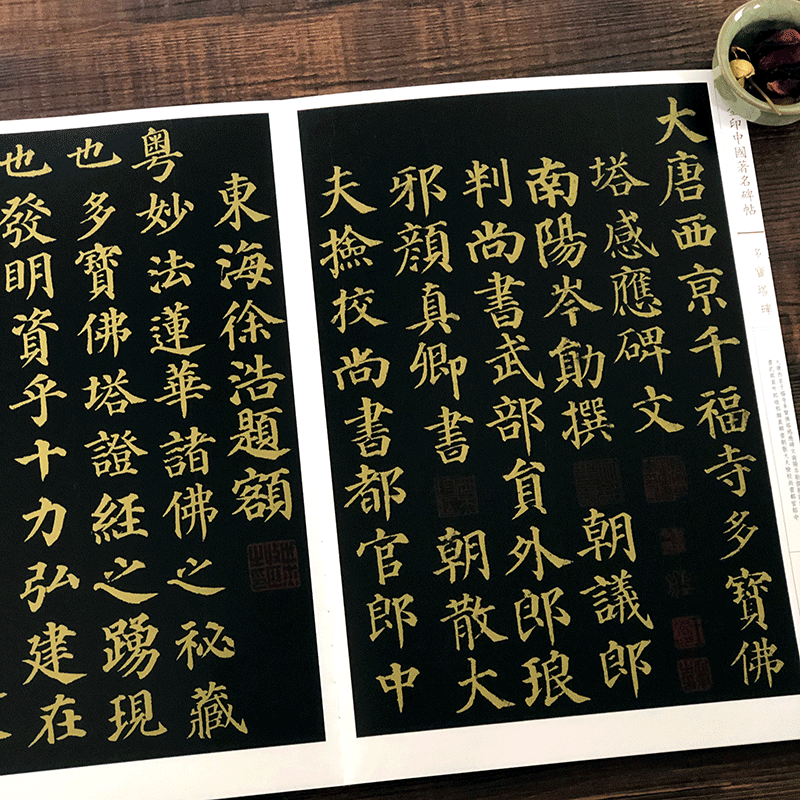 大唐西京千福寺多寶佛
塔感應碑文
南陽岑勛撰 朝議郎
判尚書武部員外郎琅
邪顏真卿書 朝散大
夫撿挍尚書都官郎中
東海徐浩題額
粵妙法蓮華諸佛之祕藏
也多寶佛塔證經之踴現
也發明資乎十力弘建在
印中國著名碑帖
多寶塔碑